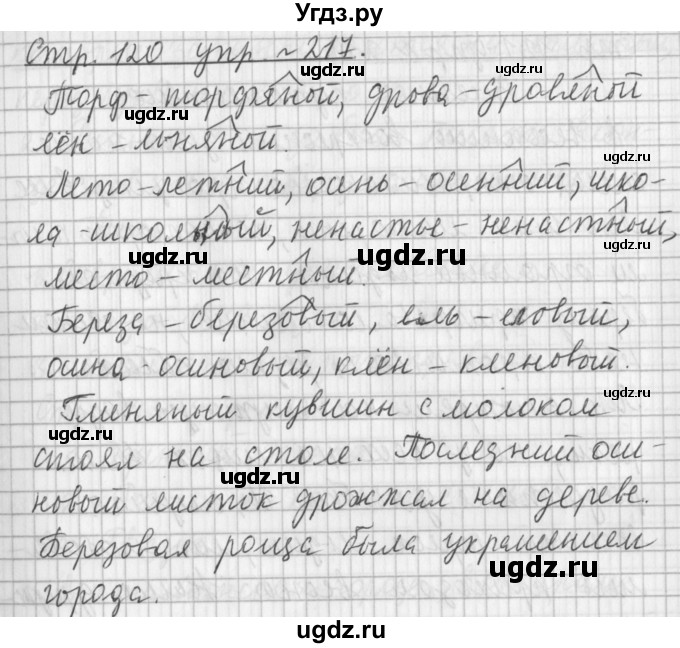 Угдз.ру
Стр. 120 упр. ~ 217.
ugdz.ru
Торф - торфяной, дрова - дровяной
ugdz.ru ugdz.ru
лён - льняной.
ugdz.ru
Лето - летний, осень - осенний, шко-
ла - школьный, ненастье - ненастный,
ugdz.ru ugdz.ru
место - местный.
Береза - березовый, ель - еловый,
ugdz.ru
осина - осиновый, клён - кленовый.
ugdz.ru
Глиняный кувшин с молоком
ugdz.ru
стоял на столе. Последний оси-
ugdz.ru
новый листок дрожжал на дереве.
ugdz.ru
Березовая роща была украшением
ugdz.ru
города.
ugdz.ru